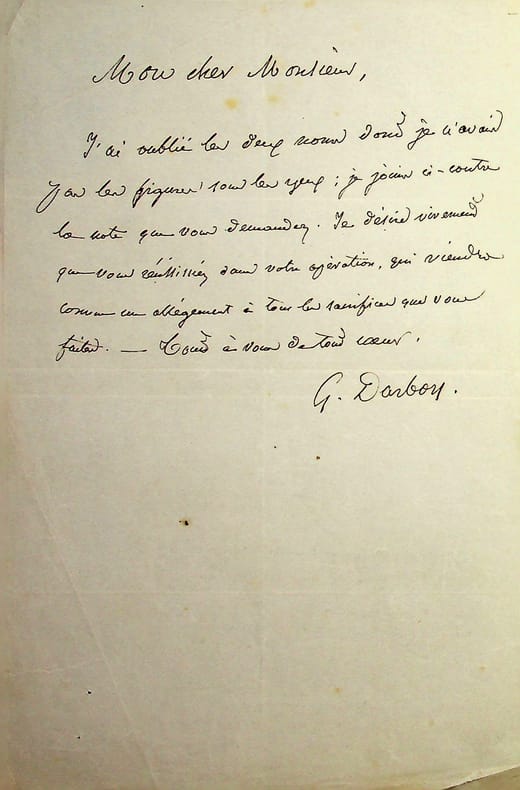 Mon cher Monsieur,
J'ai oublié les deux noms dont je n'avais
pas les figures sous les yeux ; je joins ci-contre
la note que vous demandez. Je désire vivement
que vous réussissiez dans votre opération, qui viendra
comme un allégement à tous les sacrifices que vous
faites. — Tout à vous de tout cœur.
G. Darboy.